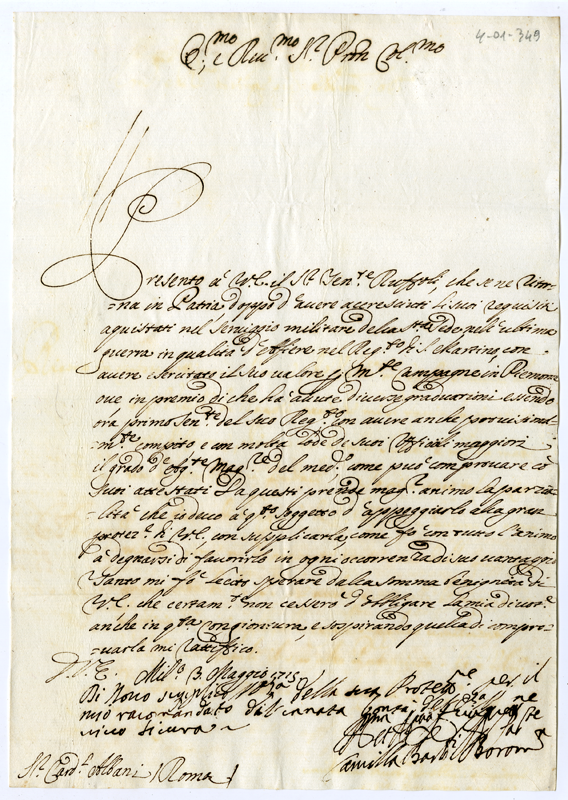 4-01-349
E.mo e Reu.mo Sr. Pron Col.mo
Presento à V.E. il Sr. Ten.te che se ne ritor=
=na in Patria doppo d'auere accresciuti li suoi requisiti
aquistati nel Seruiggio militare della nell'ultima
guerra in qualità d'Alfiere nel Reg.to di S. Martino, con
auere esercitato il suo valore p m.te Campagne in Piemonte
oue in premio di che hà autute diuerse graduationi essendo
óra primo Ten.te del suo Reg.to con auere anche
m.te compito e con molta lode di suoi Officiali maggiori
il grado d'Ag.te Mag.re del med.o come può comprouare cò
suoi attestati. Da questi prende mag.r animo la parzia=
=lità che à q.to sogetto d'appoggiarlo alla gran
protez.e di V.E. con supplicarla, come fò con tutto l'animo
à degnarsi di fauorirlo in ogni occorrenza di suo vantaggio
Tanto mi fò lecito sperare dalla somma benignità di
V.E. che certam.te non cesserò d'obligare la mia diuot.e
anche in q.ta congiontura, e sospirando quella di compro=
=uarla mi ratifico.
D.V.E. Mil.o 3. Maggio 1715
Di nouo suplico della sua Protet.ne per il
mio racomandato dal
uiuo sicura
Camilla Barbò Borom.a
Sr. Card.l Albani / Roma /